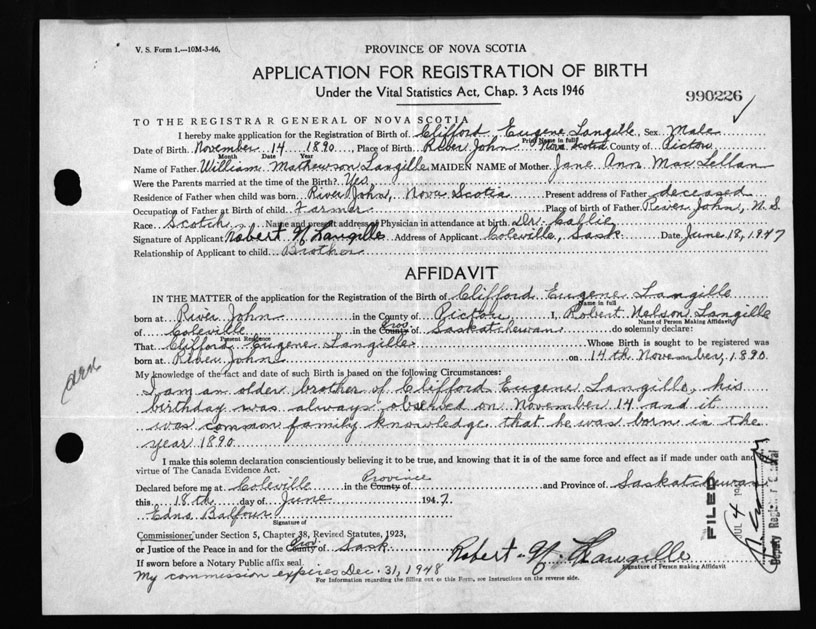 V. S. Form 1.—10M-3-46.
PROVINCE OF NOVA SCOTIA
APPLICATION FOR REGISTRATION OF BIRTH
Under the Vital Statistics Act, Chap. 3 Acts 1946
990226
TO THE REGISTRAR GENERAL OF NOVA SCOTIA
I hereby make application for the Registration of Birth of Clifford Eugene Langille Sex Male
Print Name in full
Date of Birth November 14 1890 Place of Birth River John, Nova Scotia County of Pictou
Month Date Year
Name of Father William Mathewson Langille MAIDEN NAME of Mother Jane Ann MacLellan
Were the Parents married at the time of the Birth? Yes
Residence of Father when child was born River John, Nova Scotia Present address of Father deceased
Occupation of Father at Birth of child Farmer Place of birth of Father River John, N.S
Race Scotch Name and present address of Physician in attendance at birth Dr. Collie
Signature of Applicant Robert N Langille Address of Applicant Coleville, Sask. Date June 18, 1947
Relationship of Applicant to child Brother
AFFIDAVIT
IN THE MATTER of the application for the Registration of the Birth of Clifford Eugene Langille
Name in full
born at River John in the County of Pictou I, Robert Nelson Langille
Name of Person Making Affidavit
of Coleville in the County of Prov Saskatchewan do solemnly declare:
Present Residence
That Clifford Eugene Langille Whose Birth is sought to be registered was
born at River John on 14th November, 1890.
My knowledge of the fact and date of such Birth is based on the following Circumstances:
I am an older brother of Clifford Eugene Langille, his
birthday was always observed on November 14 and it
was common family knowledge that he was born in the
year 1890
I make this solemn declaration conscientiously believing it to be true, and knowing that it is of the same force and effect as if made under oath and
virtue of The Canada Evidence Act.
Declared before me at Coleville in the County of Province and Province of Saskatchewan
this 18th day of June 1947
Edna Balfour
Signature of
Commissioner under Section 5, Chapter 38, Revised Statutes, 1923,
or Justice of the Peace in and for the County of Prov Sask
If sworn before a Notary Public affix seal
My commission expires Dec. 31, 1948
Robert N. Langille
Signature of Person making Affidavit
For Information regarding the filling out of this Form, see Instructions on the reverse side.
FILED
JUL 4 19
Deputy Registrar General